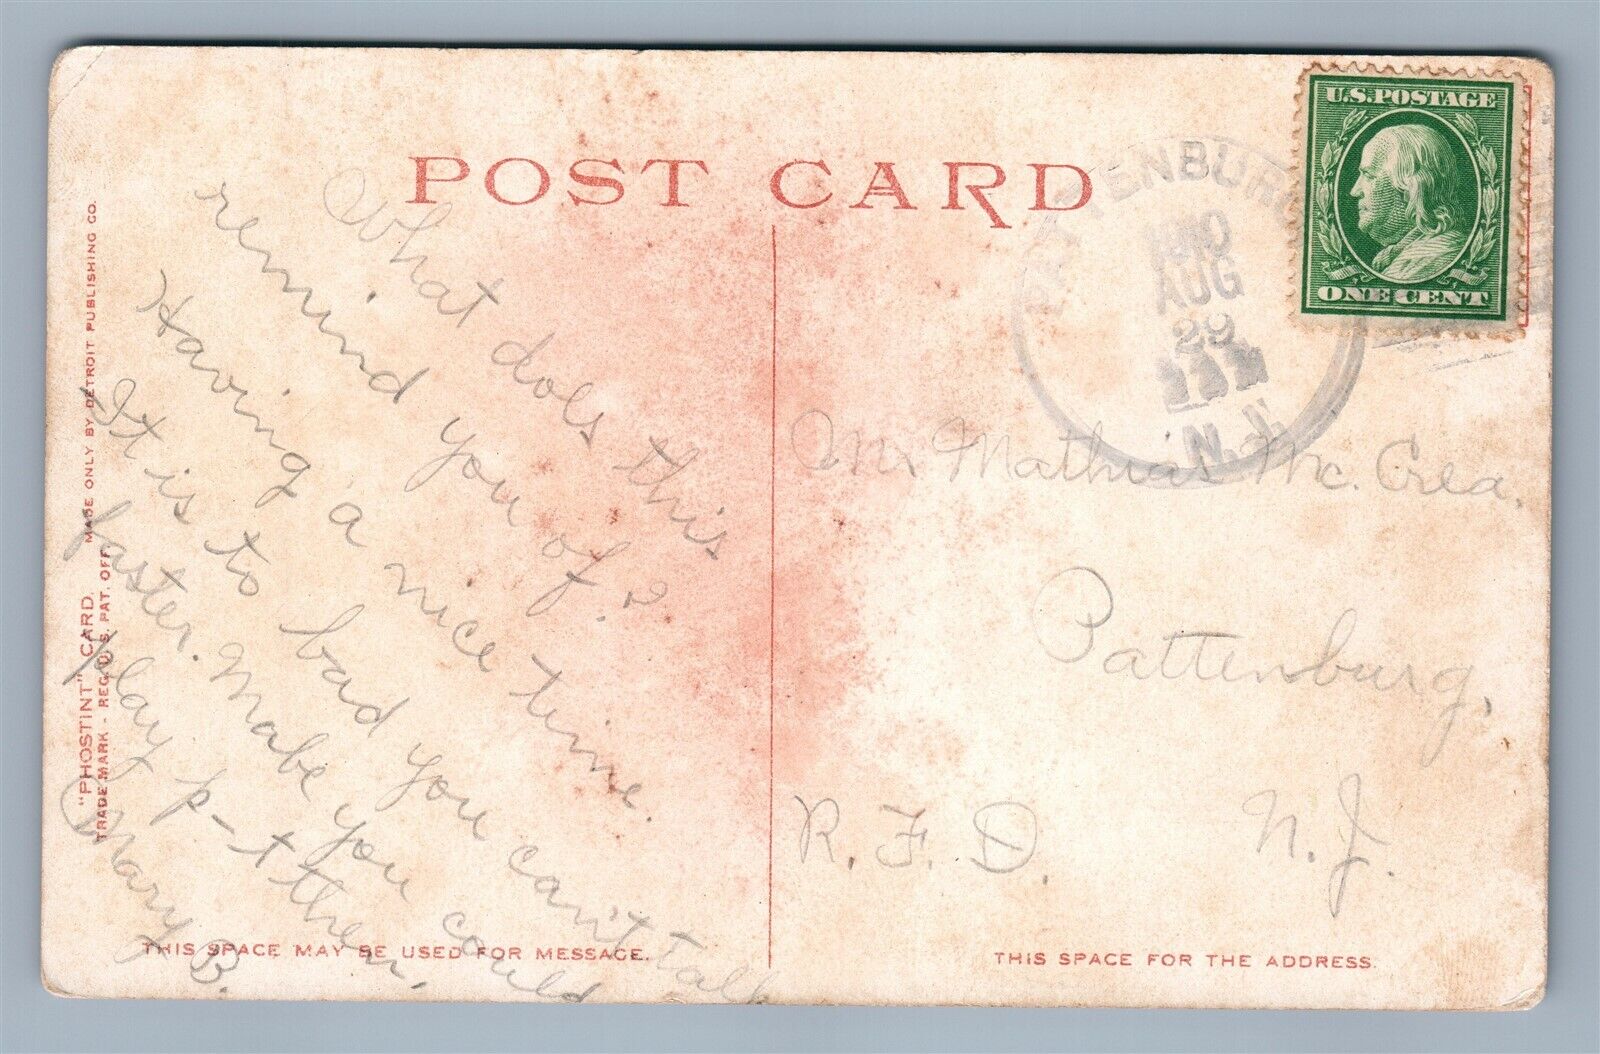 POST CARD
U.S. POSTAGE
ONE CENT
PATTENBURG
1910
AUG
29
N.J.
What does this
remind you of?
Having a nice time.
It is to bad you can't talk
faster. Mabe you could
play p-t then.
Mary B.
Mr Mathias Mc. Crea.
Pattenburg,
R. F. D. N. J.
"PHOSTINT" CARD
MADE ONLY BY DETROIT PUBLISHING CO.
TRADE MARK - REG. U. S. PAT. OFF.
THIS SPACE MAY BE USED FOR MESSAGE.
THIS SPACE FOR THE ADDRESS.